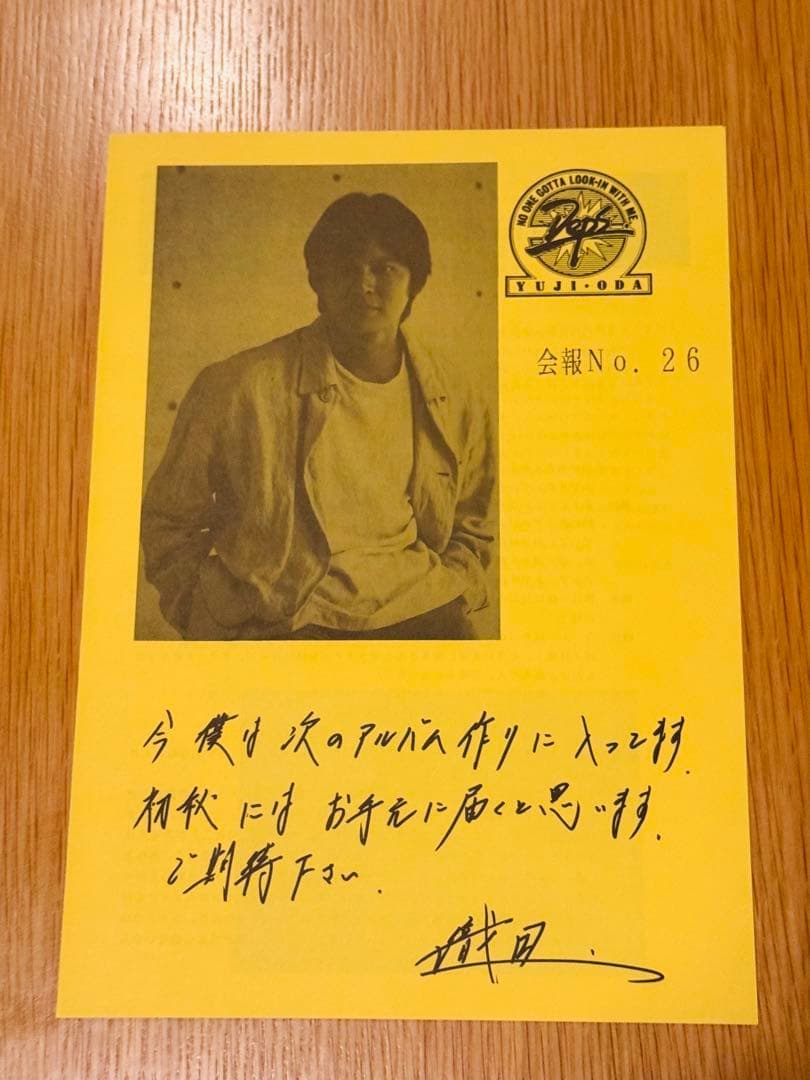 NO ONE GOTTA LOOK-IN WITH ME.
YUJI・ODA
会報No. 26
今 僕は 次のアルバム作りに 入ってます.
初秋には お手元に届くと思います.
ご期待下さい.
織田.